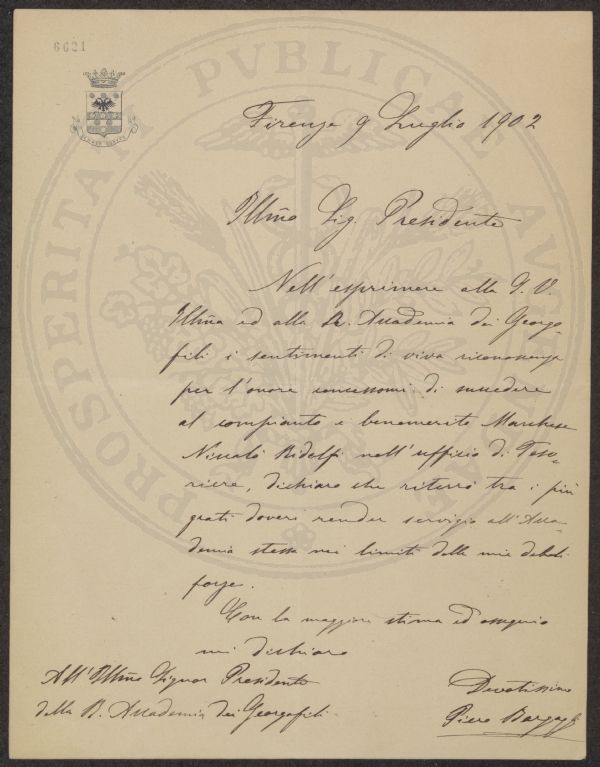 6621
PROSPERITATI PVBLICAE AVGENDAE
Firenze 9 Luglio 1902
Illmo Sig. Presidente
Nell'esprimere alla S. V.
Illma ed alla R. Accademia dei Georgo-
fili i sentimenti di viva riconoscenza
per l'onore concessomi di succedere
al compianto e benemerito Marchese
Niccolò Ridolfi nell'ufficio di Teso-
riere, dichiaro che riterrò tra i più
grati doveri render servigio all'Acca-
demia stessa nei limiti delle mie deboli
forze.
Con la maggiore stima ed ossequio
mi dichiaro
All'Illmo Signor Presidente
della R. Accademia dei Georgofili
Devotissimo
Piero Bargagli